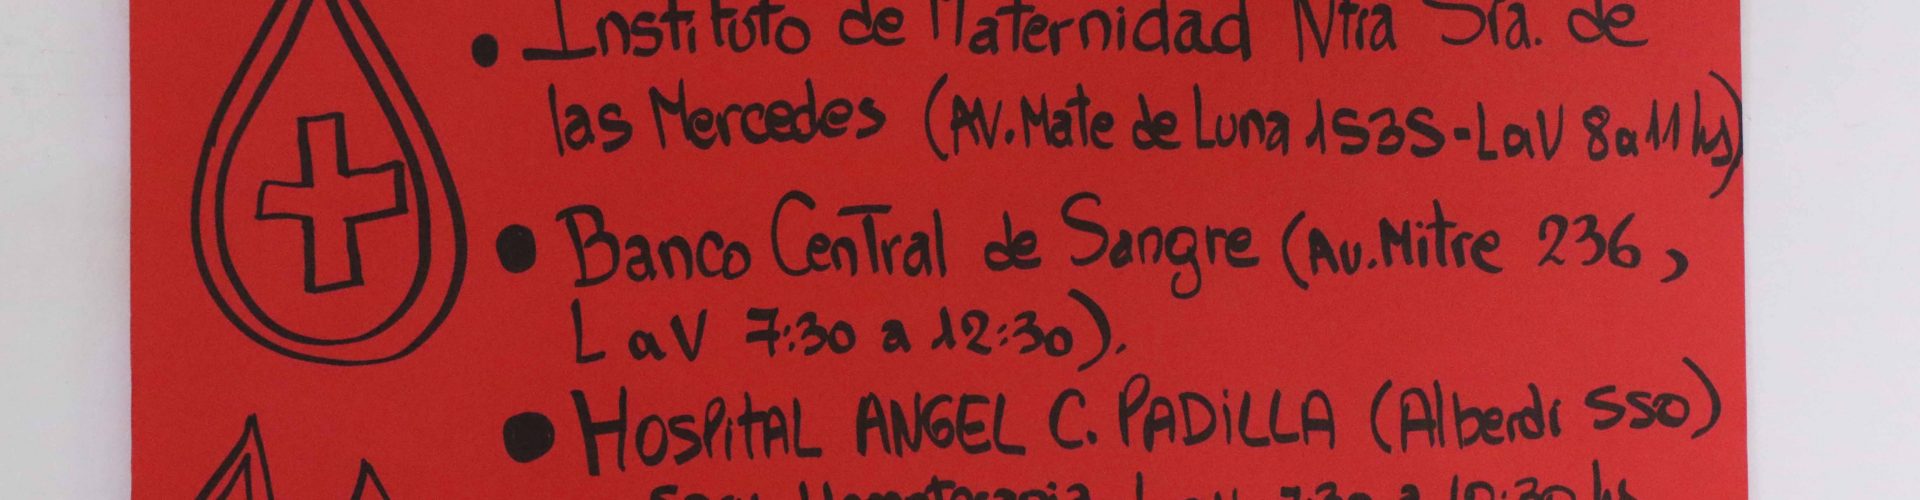 • Instituto de Maternidad Ntra Sra. de
las Mercedes (AV. Mate de Luna 1535 - LaV 8 a 11 hs)
• Banco Central de Sangre (Av. Mitre 236,
L a V 7:30 a 12:30).
• HOSPITAL ANGEL C. PADILLA (Alberdi 550)
Hemoterapia L a V 7:30 a 10:30 hs